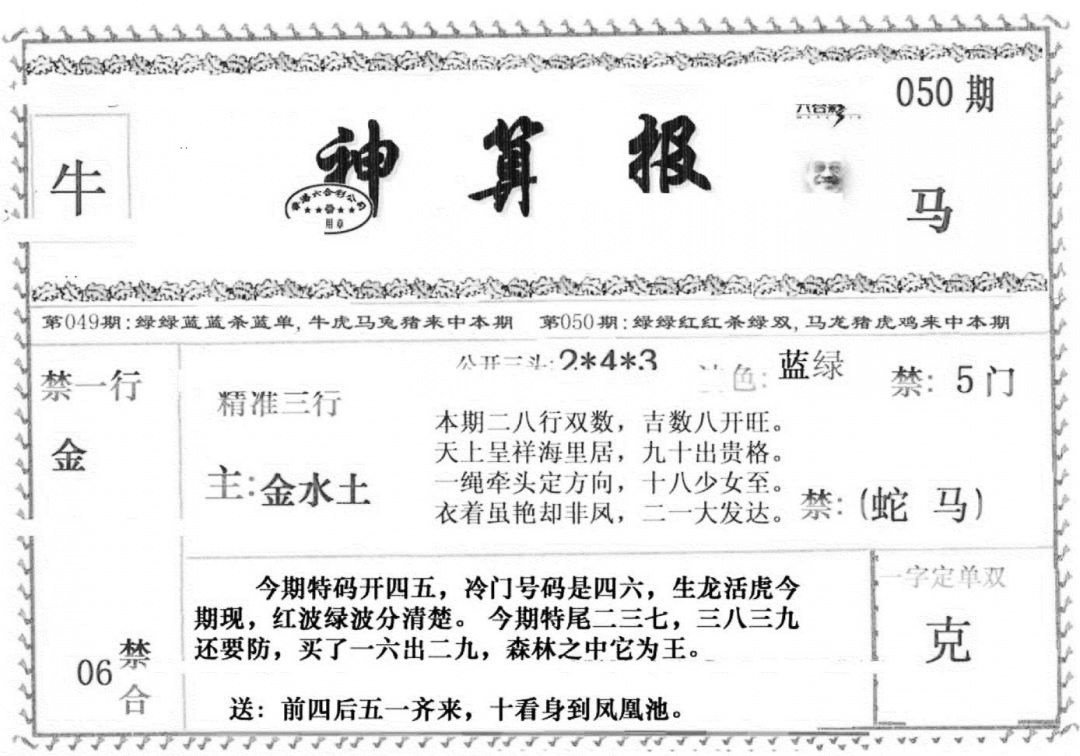 050期
六合彩
牛
神算报
香港六合彩公司
用章
马
第049期:绿绿蓝蓝杀蓝单,牛虎马兔猪来中本期 第050期:绿绿红红杀绿双,马龙猪虎鸡来中本期
禁一行
金
精准三行
主:金水土
公开三头:2*4*3
色:蓝绿
禁:5门
本期二八行双数，吉数八开旺。
天上呈祥海里居，九十出贵格。
一绳牵头定方向，十八少女至。
衣着虽艳却非凤，二一大发达。
禁:(蛇 马)
06禁合
今期特码开四五，冷门号码是四六，生龙活虎今
期现，红波绿波分清楚。今期特尾二三七，三八三九
还要防，买了一六出二九，森林之中它为王。
送：前四后五一齐来，十看身到凤凰池。
一字定单双
克